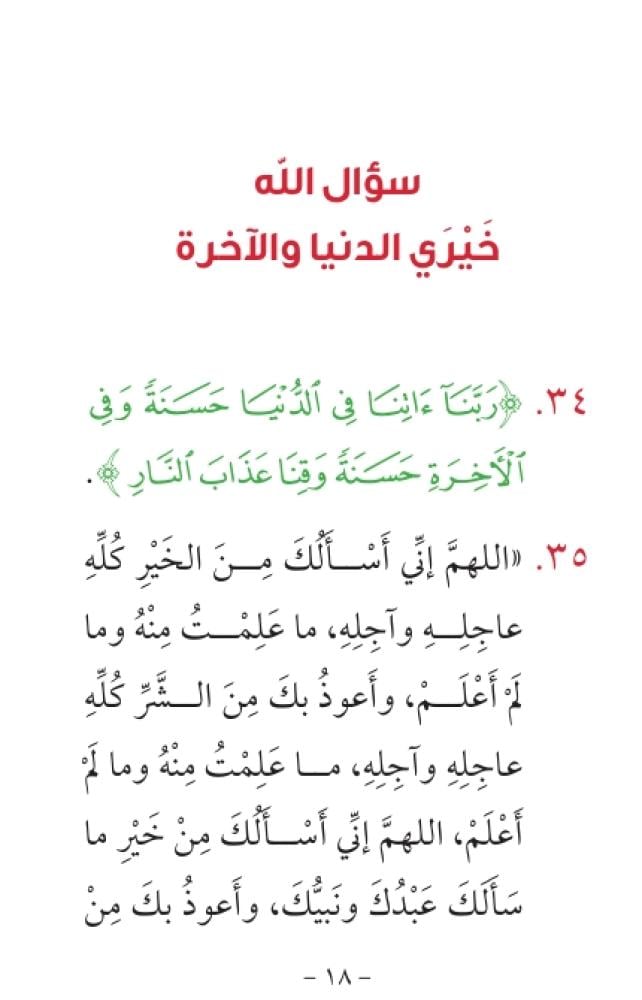 سؤال الله
خَيْرَي الدنيا والآخرة
٣٤. ﴿رَبَّنَآ ءَاتِنَا فِي ٱلدُّنْيَا حَسَنَةً وَفِي
ٱلْأَخِرَةِ حَسَنَةً وَقِنَا عَذَابَ ٱلنَّارِ﴾.
٣٥. «اللهمَّ إنِّي أَسْـــأَلُكَ مِـــنَ الخَيْرِ كُلِّهِ
عاجِلِـــهِ وآجِلِهِ، ما عَلِمْـــتُ مِنْهُ وما
لَمْ أَعْلَـــمْ، وأَعوذُ بكَ مِنَ الـــشَّرِّ كُلِّهِ
عاجِلِهِ وآجِلِهِ، مـــا عَلِمْتُ مِنْهُ وما لَمْ
أَعْلَمْ، اللهمَّ إنِّي أَسْـــأَلُكَ مِنْ خَيْرِ ما
سَأَلَكَ عَبْدُكَ ونَبيُّكَ، وأَعوذُ بكَ مِنْ
– ١٨ –